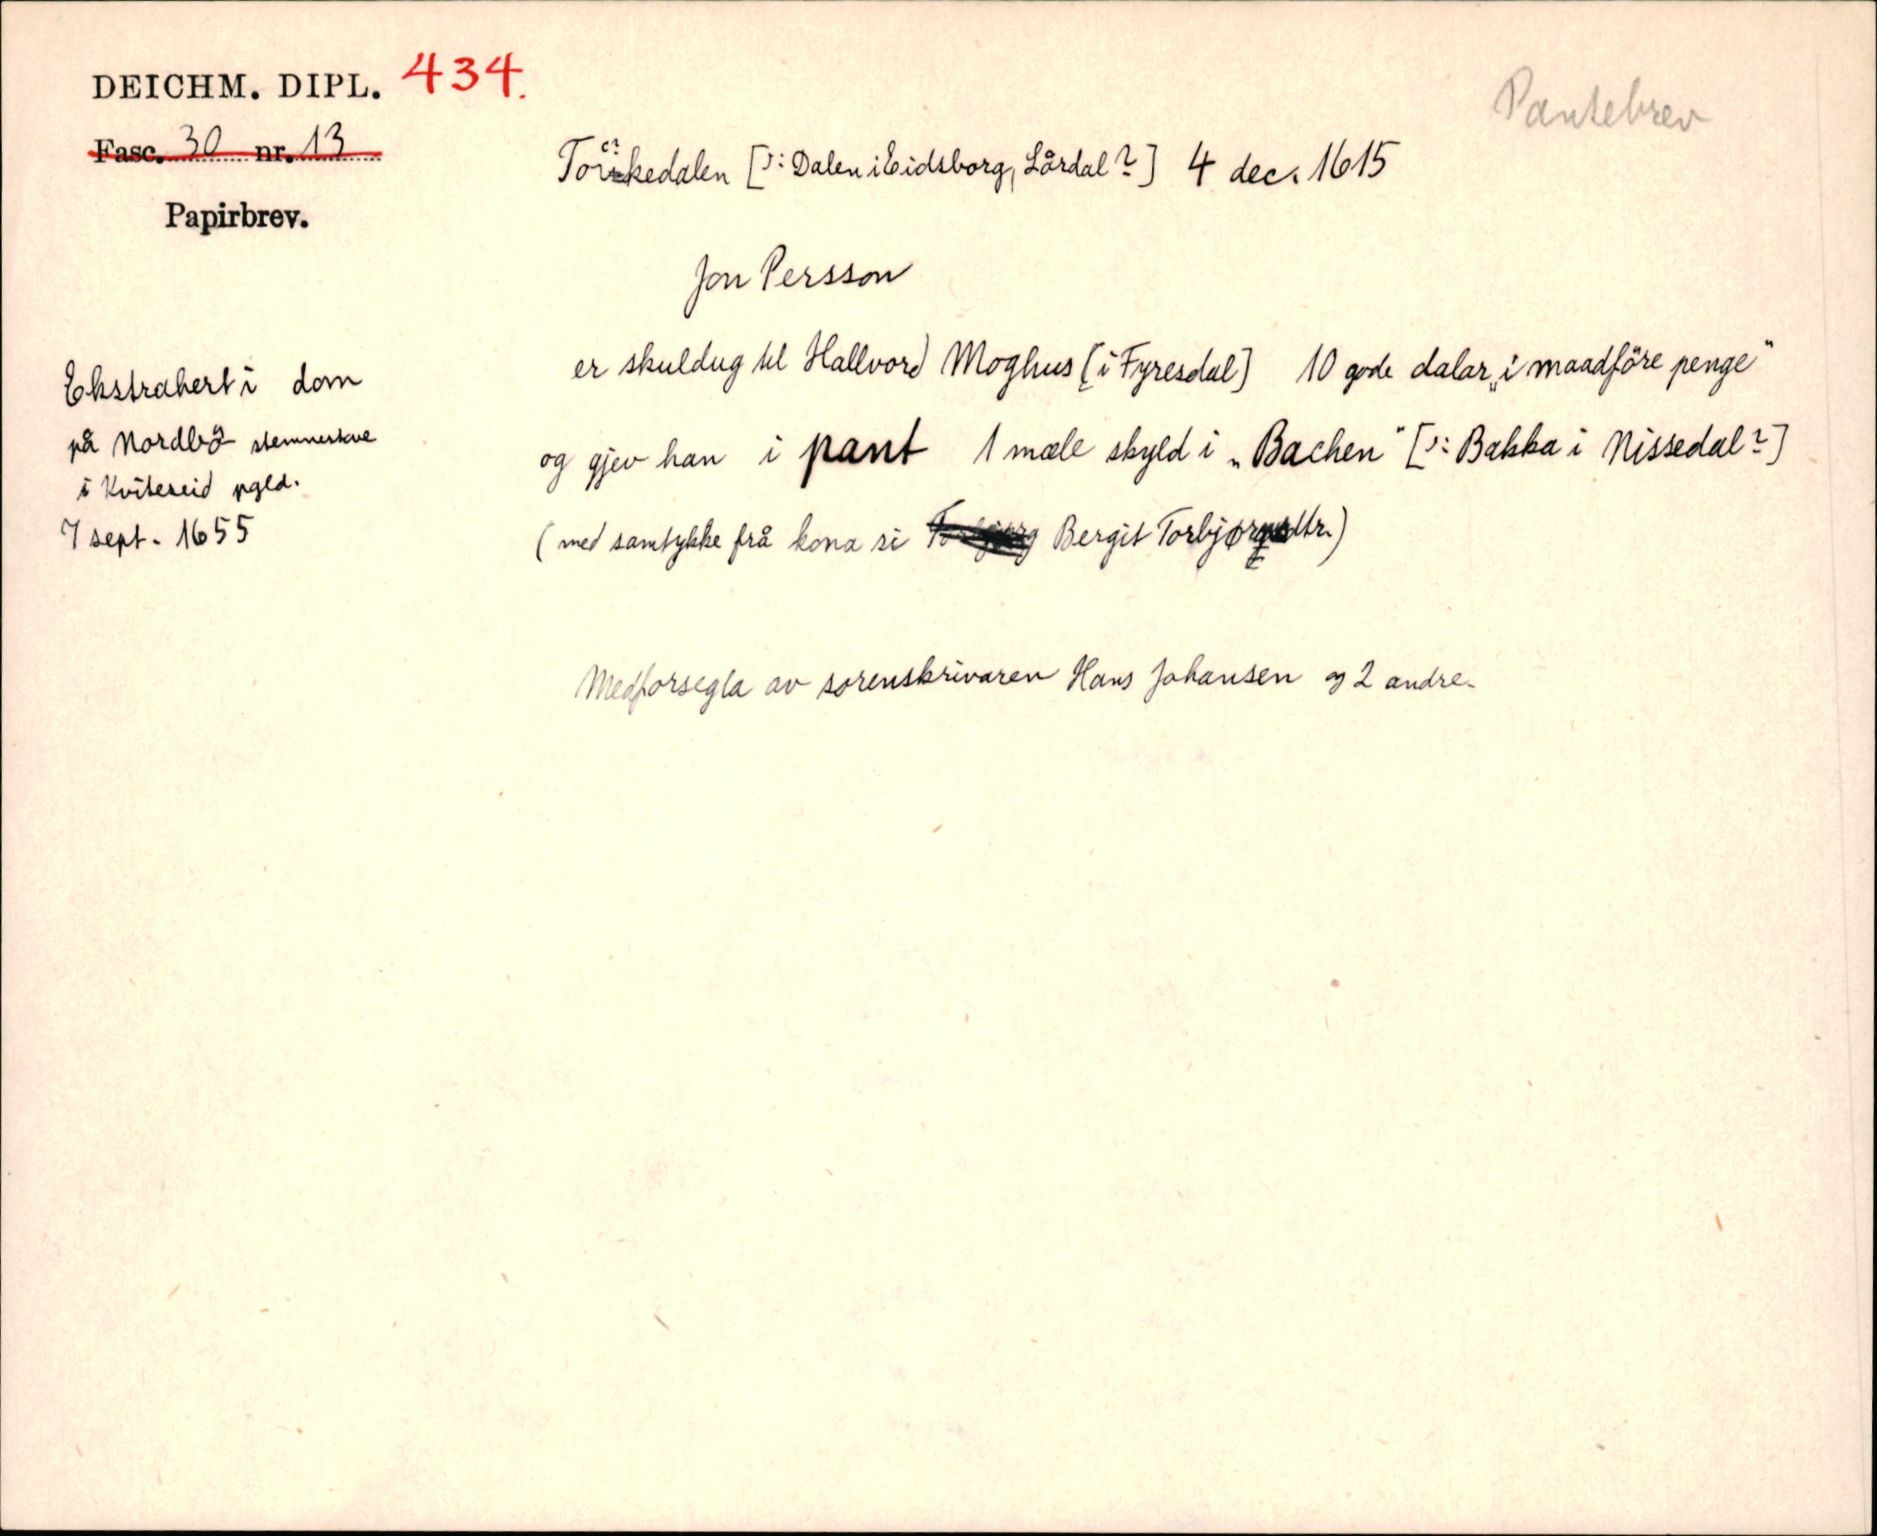 DEICHM. DIPL. 434.
Pantebrev
Fasc. 30 nr. 13
Papirbrev.
[ɔ: Dalen i Eidsborg, Lårdal?] 4 dec. 1615
Jon Persson
er skuldug til Hallvord Moghus [i Fyresdal] 10 gode dalar „i maadföre penge"
og gjev han i pant 1 mæle skyld i „Bachen" [ɔ: Bakka i Nissedal?]
(med samtykke frå kona si Bergit Torbjørgsdtr.)
Medforsegla av sorenskrivaren Hans Johansen og 2 andre.
Ekstrahert i dom
på Nordbö stemnestove
i Kviteseid pgld.
7 sept. 1655